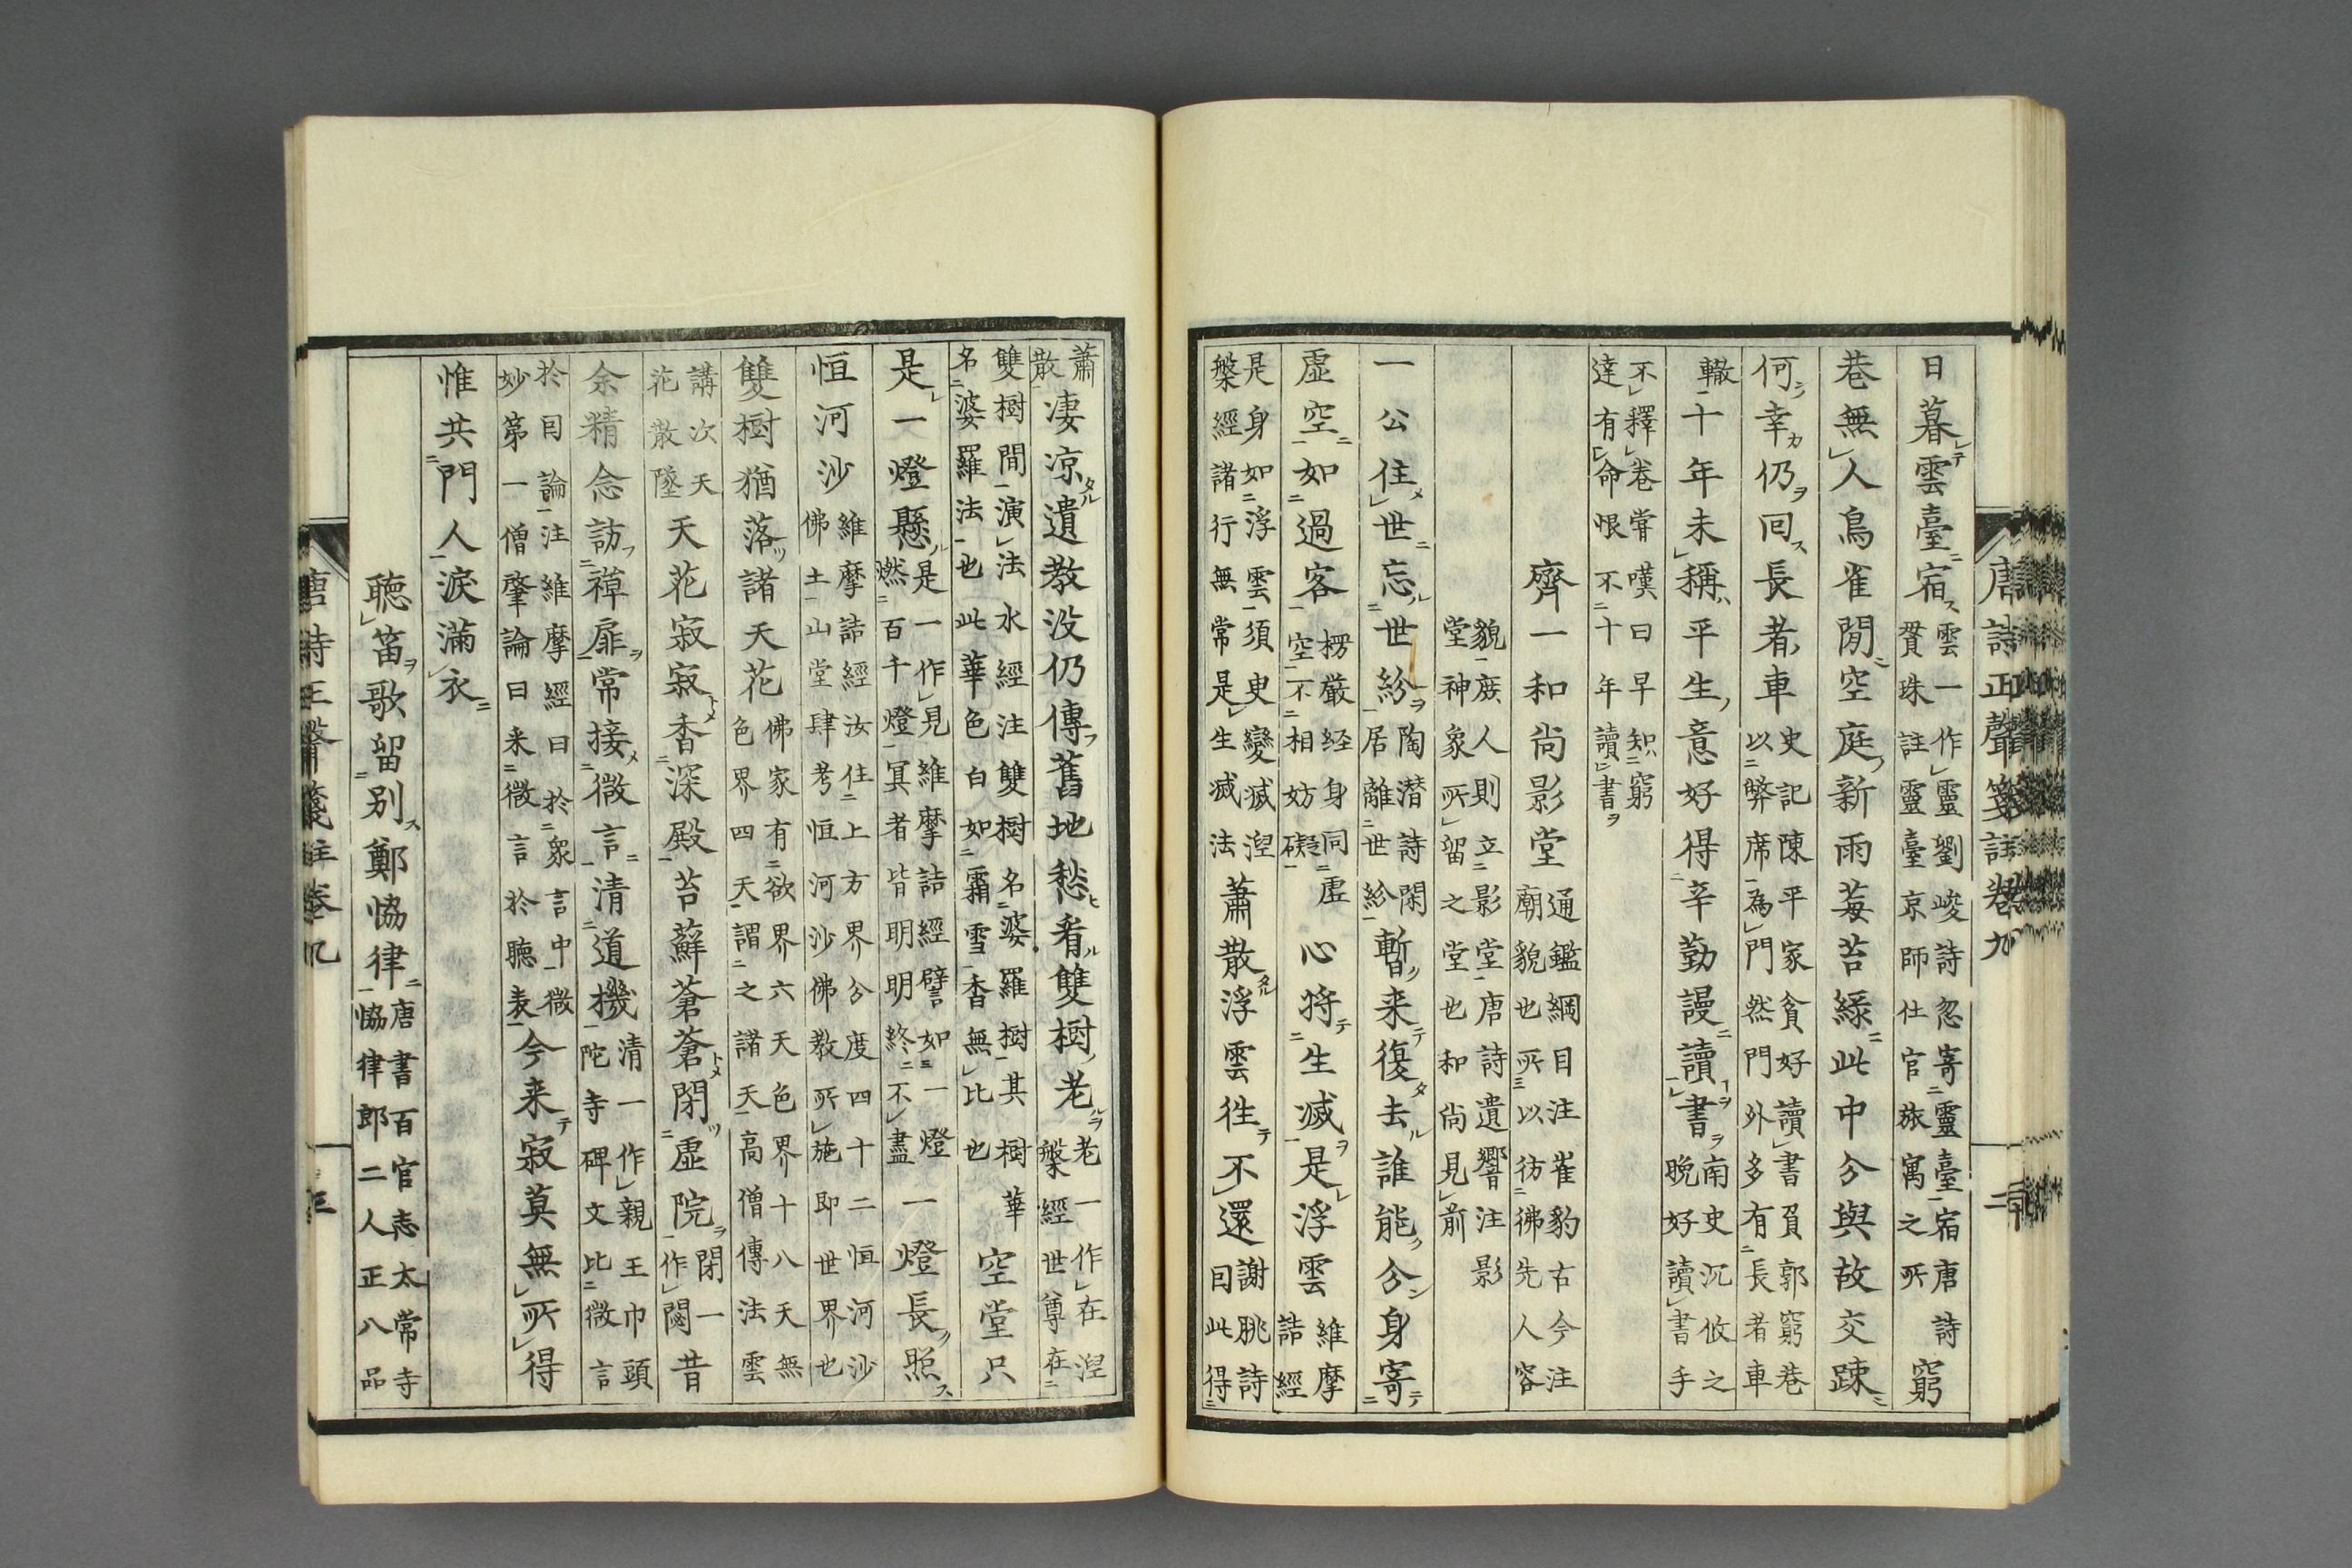 唐詩正聲箋註卷九
二
日暮雲臺宿雲一作靈劉峻詩忽寄靈臺宿唐詩賛珠註靈臺京師仕官旅寓之所窮
巷無人鳥雀閒空庭新雨莓苔綠此中分與故交踈
何幸仍回長者車史記陳平家貧好讀書負郭窮巷以弊席為門然門外多有長者車
轍十年未稱平生意好得辛勤謾讀書南史沉攸之晚好讀書手
不釋卷嘗嘆曰早知窮達有命恨不十年讀書
齊一和尚影堂通鑑綱目注崔豹古今注廟貌也所以彷彿先人容
貌庻人則立影堂唐詩遺響注影堂神象所留之堂也和尚見前
一公住世忘世紛陶潜詩閑居離世紛暫来復去誰能分身寄
虛空如過客楞嚴経身同虛空不相妨礙心將生滅是浮雲維摩詰經
是身如浮雲須臾變滅湼槃經諸行無常是生滅法蕭散浮雲徃不還謝朓詩目此得
蕭散淒凉遺教没仍傳舊地愁看雙樹老老一作在湼槃經世尊在
雙樹間演法水經注雙樹名婆羅樹其樹華名婆羅法也此華色白如霜雪香無比也空堂只
是一燈懸是一作見維摩詰經譬如一燈燃百千燈冥者皆明明終不盡一燈長照
恒河沙維摩詰經汝住上方界分度四十二恒河沙佛土山堂肆考恒河沙佛教所施即世界也
雙樹猶落諸天花佛家有欲界六天色界十八天無色界四天謂之諸天高僧傳法雲
講次天花散墜天花寂寂香深殿苔蘚蒼蒼閉虛院閉一作閟昔
余精念訪禅扉常接微言清道機清一作親王巾頭陀寺碑文比微言
於目論注維摩經曰於衆言中微妙第一僧肇論曰来微言於聴表今来寂莫無所得
惟共門人淚滿衣
聽笛歌留別鄭協律唐書百官志太常寺協律郎二人正八品
唐詩正聲箋註卷九
三